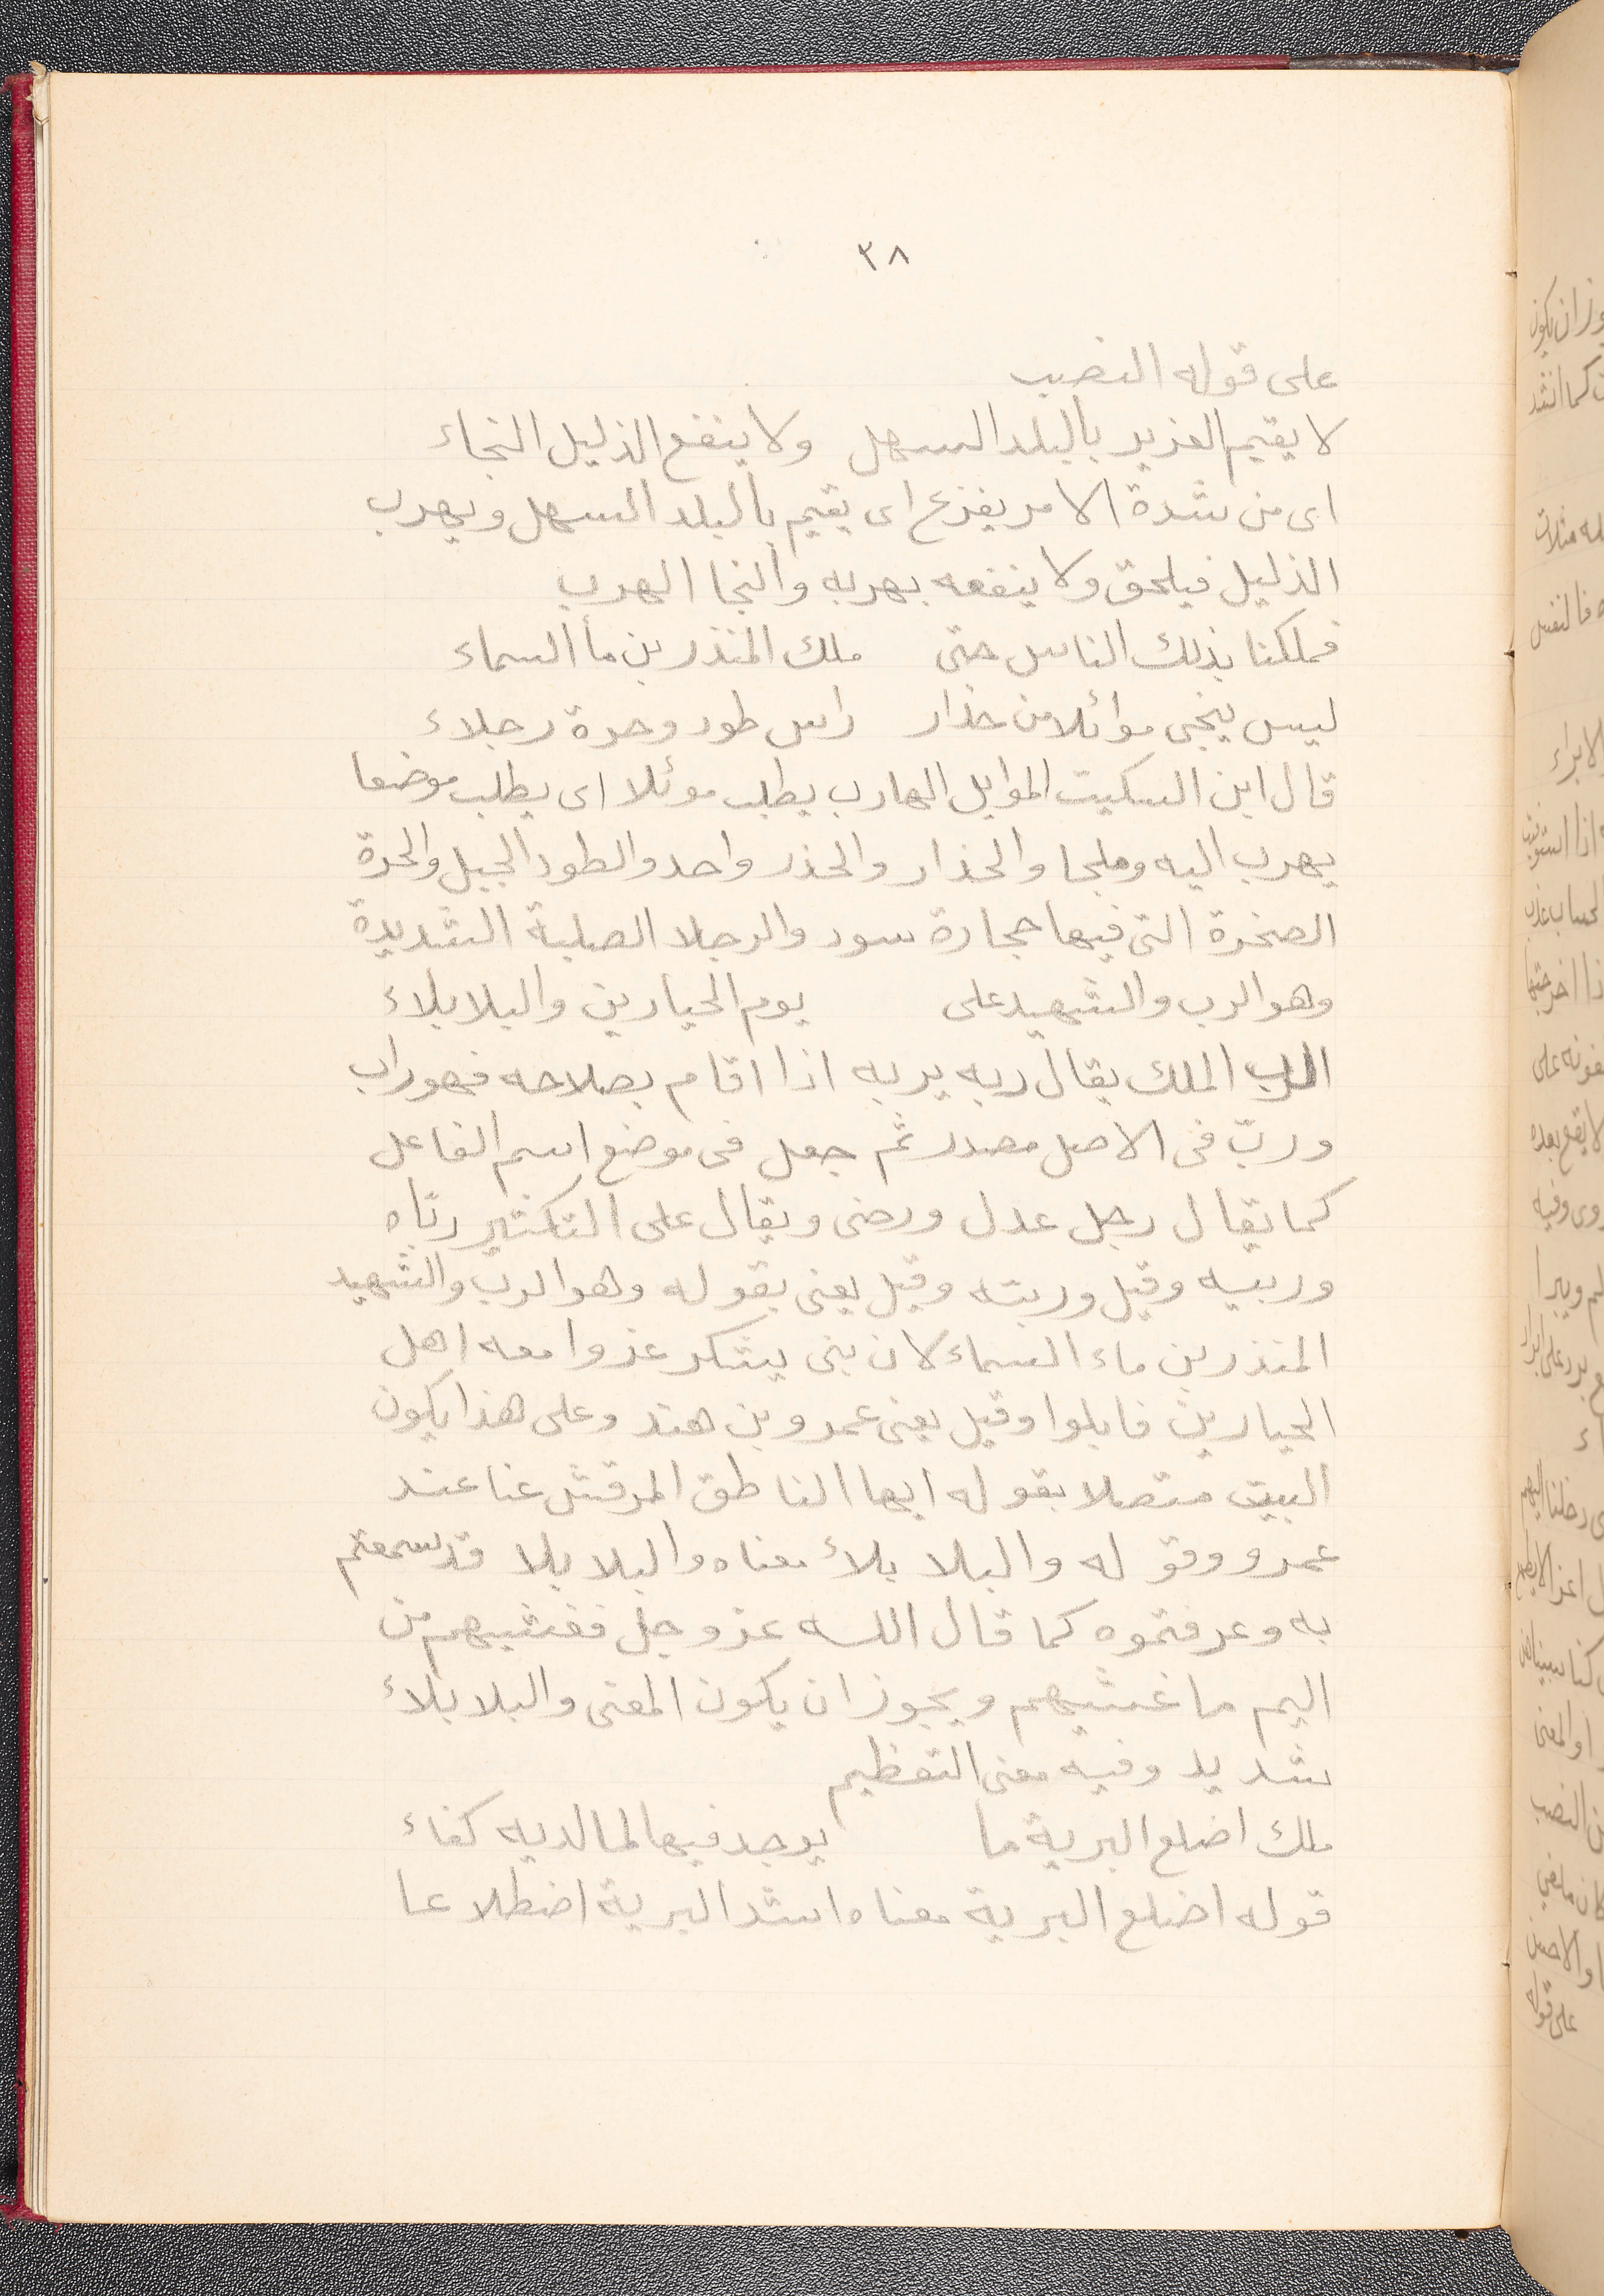 ٣٨
على قوله النصب
لا يقيم العزيز بالبلد السهل ولا ينفع الذليل النجاء
اى من شدة الامر يفزع اى يقيم بالبلد السهل ويهرب
الذليل فيلحق ولا ينفعه بهربه والنجا الهرب
فملكنا بذلك الناس حتى ملك المنذر بن مأ السماء
ليس ينجى موائلا من حذار راس طود وحرة رجلاء
قال ابن السكيت الموايل الهارب يطلب موئلا اى يطلب موضعا
يهرب اليه وملجا والحذار والحذر واحد والطود الجبل والحرة
الصخرة التى فيها حجارة سود والرجلا الصلبة الشديدة
وهو الرب والشهيد على يوم الحيارين والبلا بلاء
الرب الملك يقال ربه يربه اذا اقام بصلاحه فهو راب
وربّ فى الاصل مصدر ثم جعل فى موضع اسم الفاعل
كما يقال رجل عدل ورضى ويقال على التكثير ربّاه
وربيه وقيل وربته وقيل يعنى بقوله وهو الرب والشهيد
المنذر بن ماء السماء لان بنى يشكر غزوا معه اهل
الحيارين فابلوا وقيل يعنى عمرو بن هند وعلى هذا يكون
البيت متصلا بقوله ايها الناطق المرقش عنا عند
عمرو وقوله والبلا بلأ معناه والبلا بلا قد سمعتم
به وعرفتموه كما قال الله عز وجل فغشيهم من
اليم ما غشيهم ويجوز ان يكون المعنى والبلا بلاء
شديد وفيه معنى التعظيم
ملك اضلع البرية ما يوجد فيها لما لديه كفاء
قوله اضلع البرية معناه اشد البرية اضطلاعا